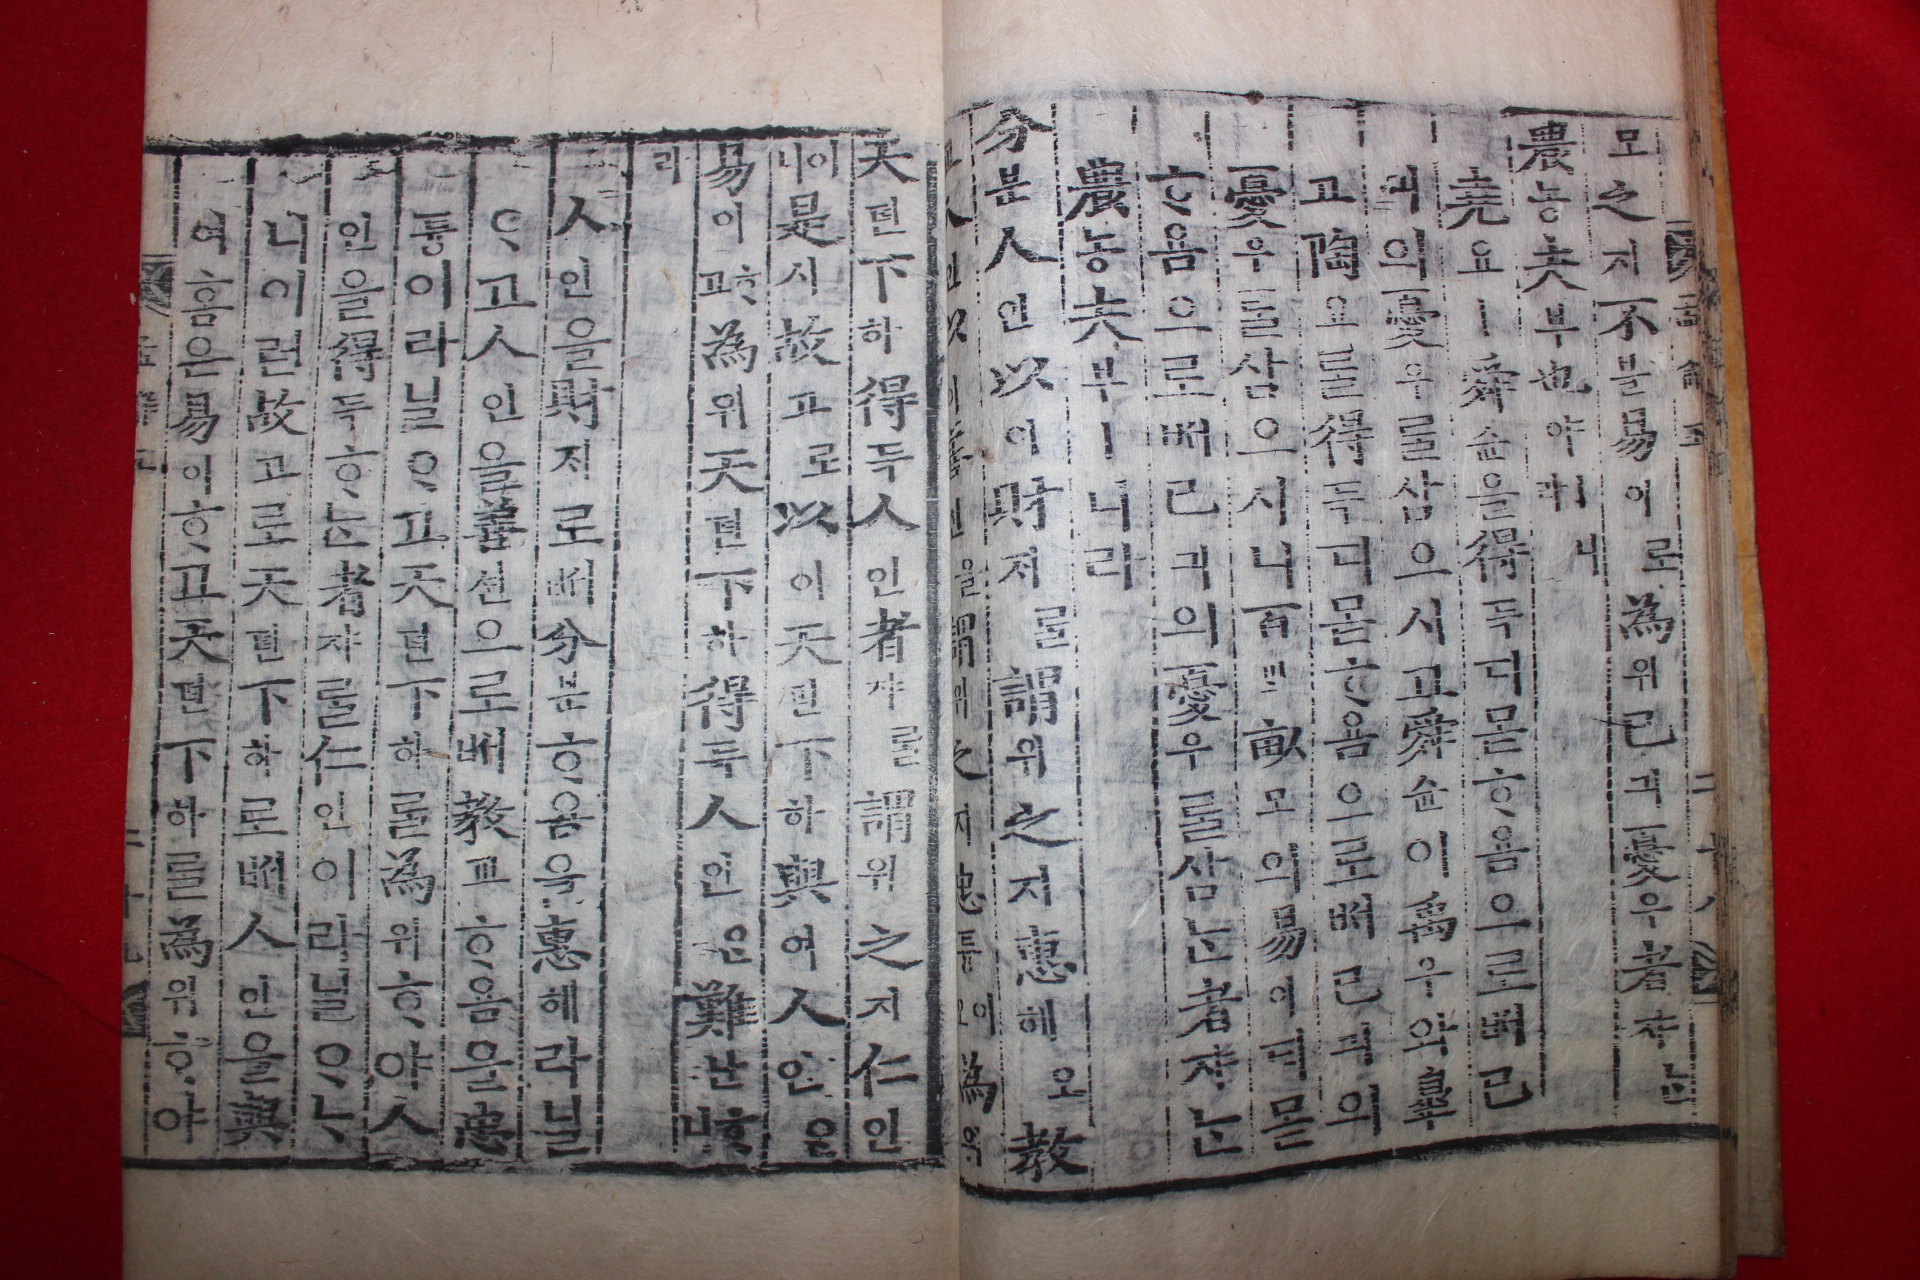 모之지不블易이로為위己긔憂우者쟈ᄂᆞᆫ
農농夫부也야ㅣ니라
堯요ㅣ舜슌을得득디몯ᄒᆞ욤으로ᄡᅥ己
긔의憂우를삼으시고舜슌이禹우와皐
고陶요를得득디몯ᄒᆞ욤으로ᄡᅥ己긔의
憂우를삼으시니百ᄇᆡᆨ畝모의易이티몯
ᄒᆞ욤으로ᄡᅥ己긔의憂우를삼ᄂᆞᆫ者쟈ᄂᆞᆫ
農농夫부ㅣ니라
分분人인以이財ᄌᆡ를謂위之지惠혜오教
교人인以이善션을謂위之지忠튱이오為위
天텬下하得득人인者쟈를謂위之지仁인
이니是시故고로以이天텬下하與여人인은
易이ᄒᆞ고為위天텬下하得득人인은難난ᄒᆞ니
라
人인을財ᄌᆡ로ᄡᅥ分분ᄒᆞ욤을惠혜라닐
ᄋᆞ고人인을善션으로ᄡᅥ教교ᄒᆞ욤을忠
튱이라닐ᄋᆞ고天텬下하를為위ᄒᆞ야人
인을得득ᄒᆞᄂᆞᆫ者쟈를仁인이라닐ᄋᆞᄂᆞ
니이런故고로天텬下하로ᄡᅥ人인을與
여홈은易이ᄒᆞ고天텬下하를為위ᄒᆞ야